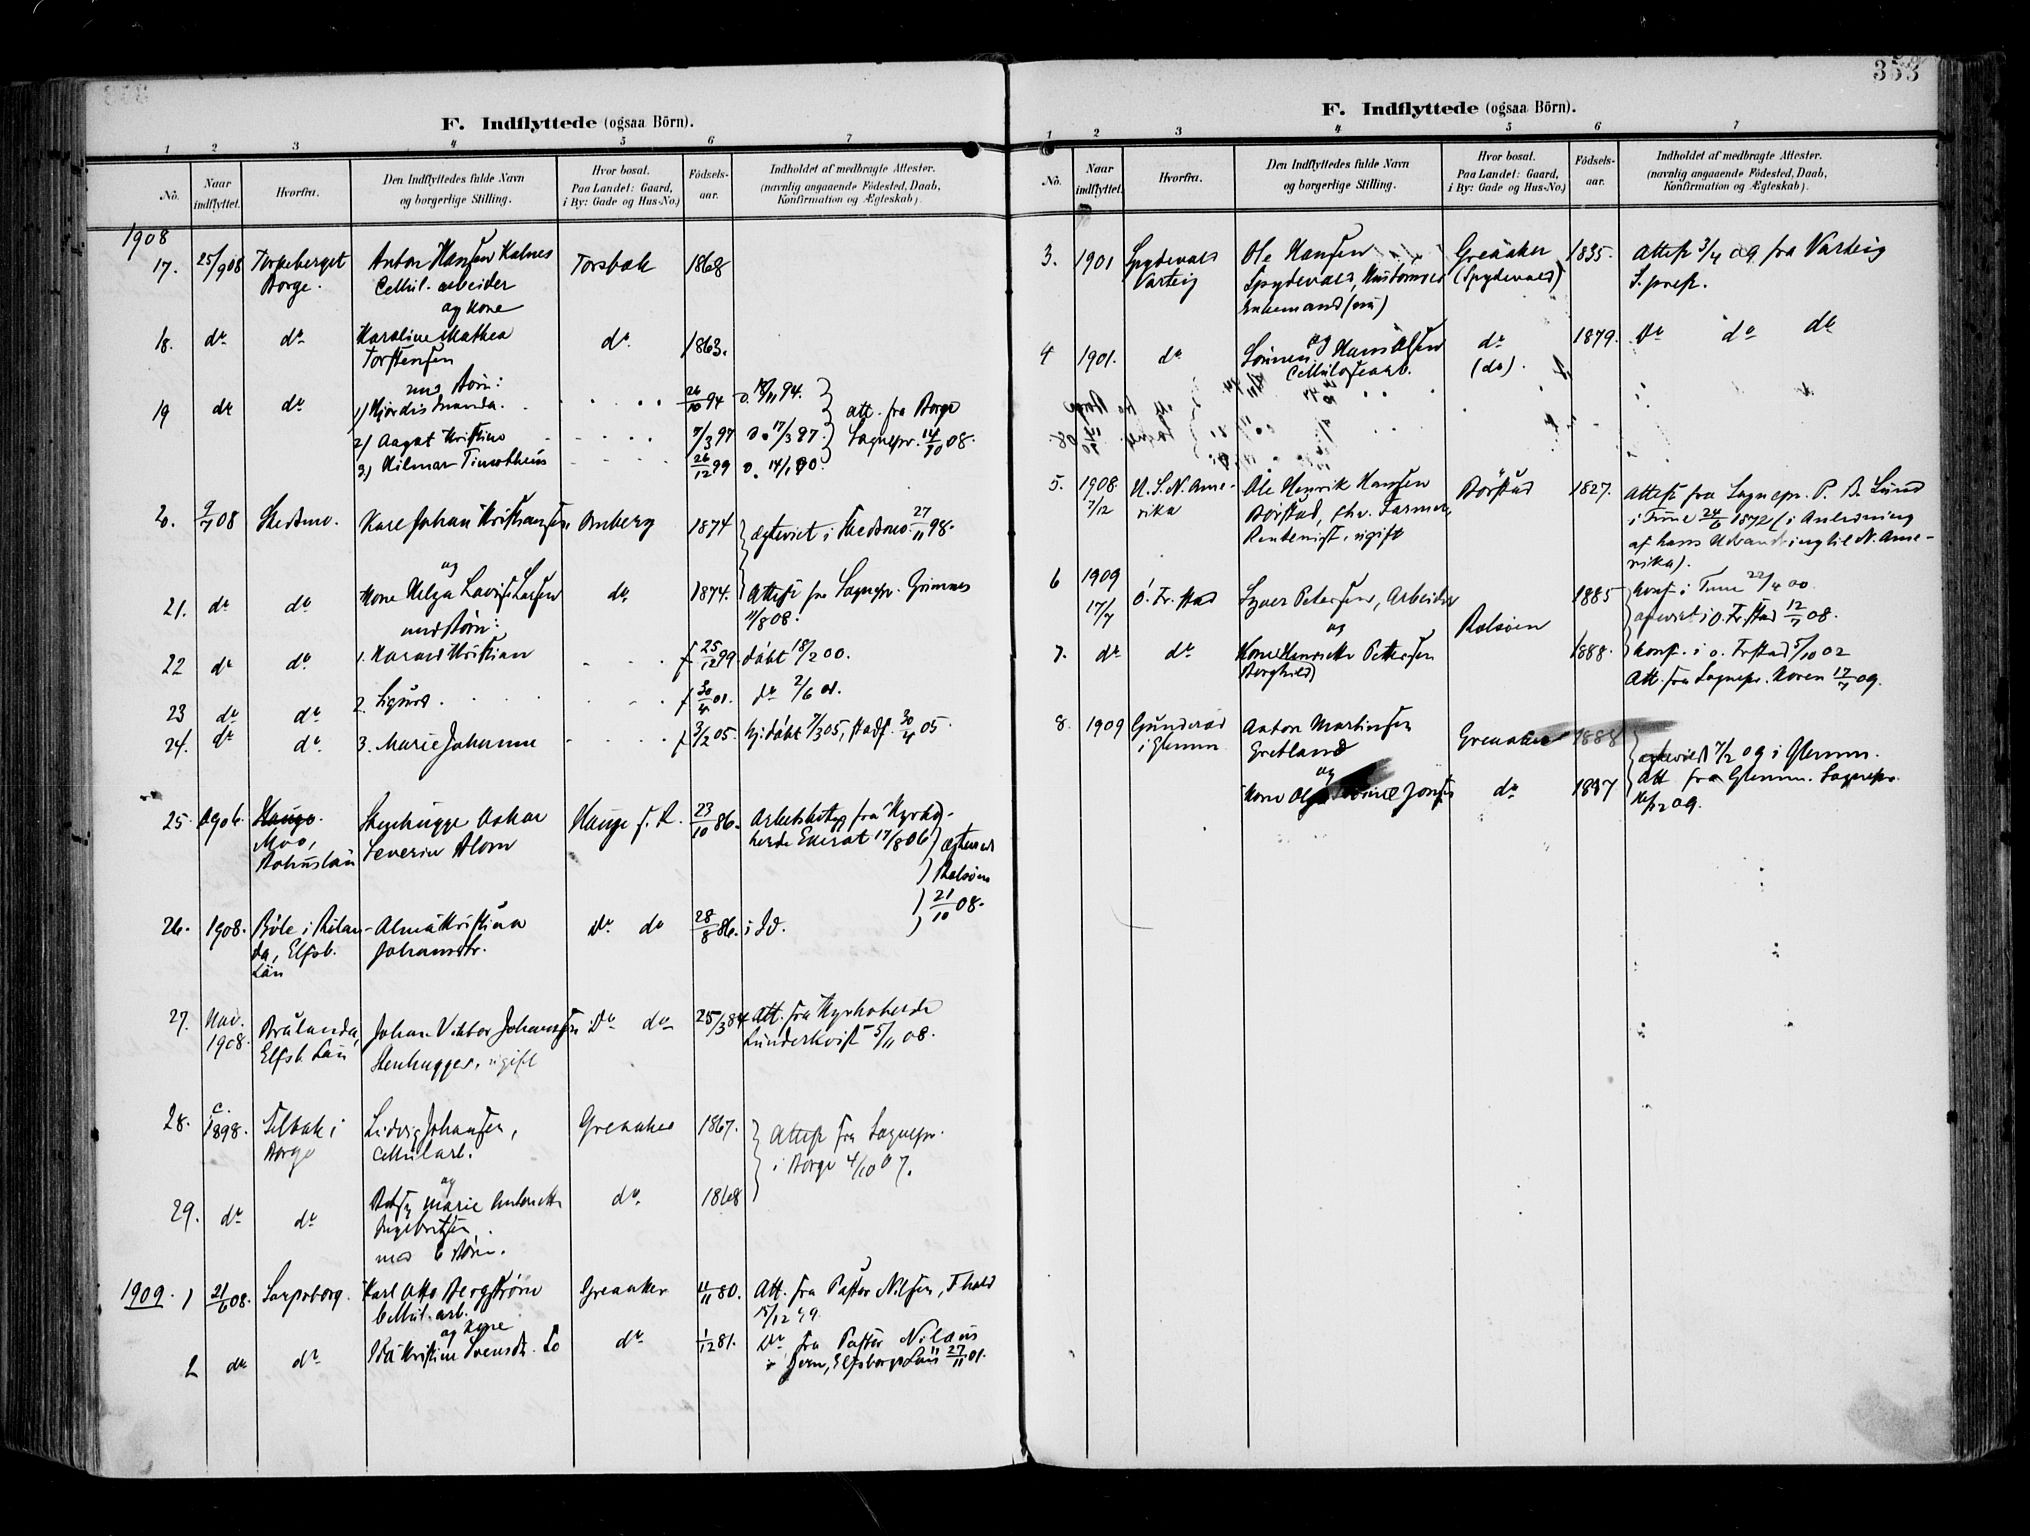 353
F. Indflyttede (ogsaa Börn).
1 2 3 4 5 6 7
No.
Naar indflyttet.
Hvorfra.
Den Indflyttedes fulde Navn og borgerlige Stilling.
Hvor bosat. Paa Landet: Gaard, i By: Gade og Hus-No.)
Födsels-aar.
Indholdet af medbragte Attester. (navnlig angaaende Födested, Daab, Konfirmation og Ægteskab).
1908
17. 25/9 08 Torpeberget Anton Hansen Kalnes Torsbæk 1868
Borge. Cellul. arbeider
og Kone
18. do do Karoline Mathea do 1863.
Torstensen
med Börn:
19 do do 1) Hjördis 26/10 94 D. 18/11 94.
2) Aagot Kristine 7/3 97 D. 17/3 97. att. fra Borge
3) Hilmar Timotheus 26/12 99 D. 14/1 00. Sognepr. 14/10 08.
20. 9/7 08 Skedsmo. Karl Johan Kristiansen Omberg 1874 ægteviet i Skedsmo 27/11 98.
og
21. do do Kone Helga Lovise Larsen do 1874. Attest fra Sognepr. Grimnes
med Börn: 11/8 08.
22 do do 1. Harald Kristian f 25/12 99 döbt 18/2 00.
23 do do 2. Sigurd f 30/4 01. do 2/6 01.
24. do do 3. Marie Johanne f 3/2 05 hj.döbt 7/3 05, stadf. 30/4 05.
25. 1906. Hauge. Stenhugger Oskar Hauge 23/10 86. Arbetsbetyg fra Kyrko-
Moo, Severin Blom herde 17/8 06
Bohuslän
21/10 08.
26. 1908. Böle i Alma Kristina Do do 28/8 86. i Id.
da, Elfsb. Johansdtr.
Län
27. Nov. Brålanda, Johan Viktor Johansson Do do 25/3 84 Att. fra Kyrkoherde
1908. Elfsb. Län Stenhugger, ugift 5/11 08.
28. c. 1898. Selbak i Ludvig Johansen, Greaaker 1867. Attest fra Sognepr.
Borge Cellul arb. i Borge 4/10 07.
og
29. do do Marie do 1868
Ingebretsen,
med 6 Börn.
1909. 1 21/6 08. Sarpsborg. Karl Otto Bergström Greaaker 11/11 80. Att. fra Pastor Nilsen, F.hald
Cellul. arb. 15/12 99.
og Kone
2 do do Ida Kristine Svensdtr. do 1/12 81. Do fra Pastor
Elfsborgs Län 27/11 01.
F. Indflyttede (ogsaa Börn).
1 2 3 4 5 6 7
No.
Naar indflyttet.
Hvorfra.
Den Indflyttedes fulde Navn og borgerlige Stilling.
Hvor bosat. Paa Landet: Gaard, i By: Gade og Hus-No.)
Födsels-aar.
Indholdet af medbragte Attester. (navnlig angaaende Födested, Daab, Konfirmation og Ægteskab).
3. 1901 Spydevold Ole Hansen Greåker 1835. Attest 3/4 09 fra Varteig
Varteig Spydevold, Husbond (Spydevold) S.prest.
Enkemand
og
4 1901. do Sönnen Hans Olsen do 1879. Do do do
Cellulosearb. (do).
5. 1908. U. S. N. Ame- Ole Henrik Hansen Börstad 1827. Attest fra Sognepr. P. B. Lund
7/12 rika Börstad, fhv. Farmer, i Tune 24/6 1872 (i Anledning
Rentenist, ugift af hans Udvandring til N. Ame-
rika).
6 1909
17/7 O. Fr.stad Syver Petersen, Arbeider Rolsöen 1885 konf. i Tune 22/4 00.
og ægteviet i O. Fr.stad 12/7 08.
7. do do Kone Henriette Pettersen 1888. konf. i O. Frstad 5/10 02
Borghild) Att. fra Sognepr. Koren 17/7 09.
8. 1909 Anton Martinsen Greaaker 1888 ægteviet 7/2 09 i Glemm.
i Glemm Gretland
og Att. fra Glemm. Sognepr.
Kone do 1887